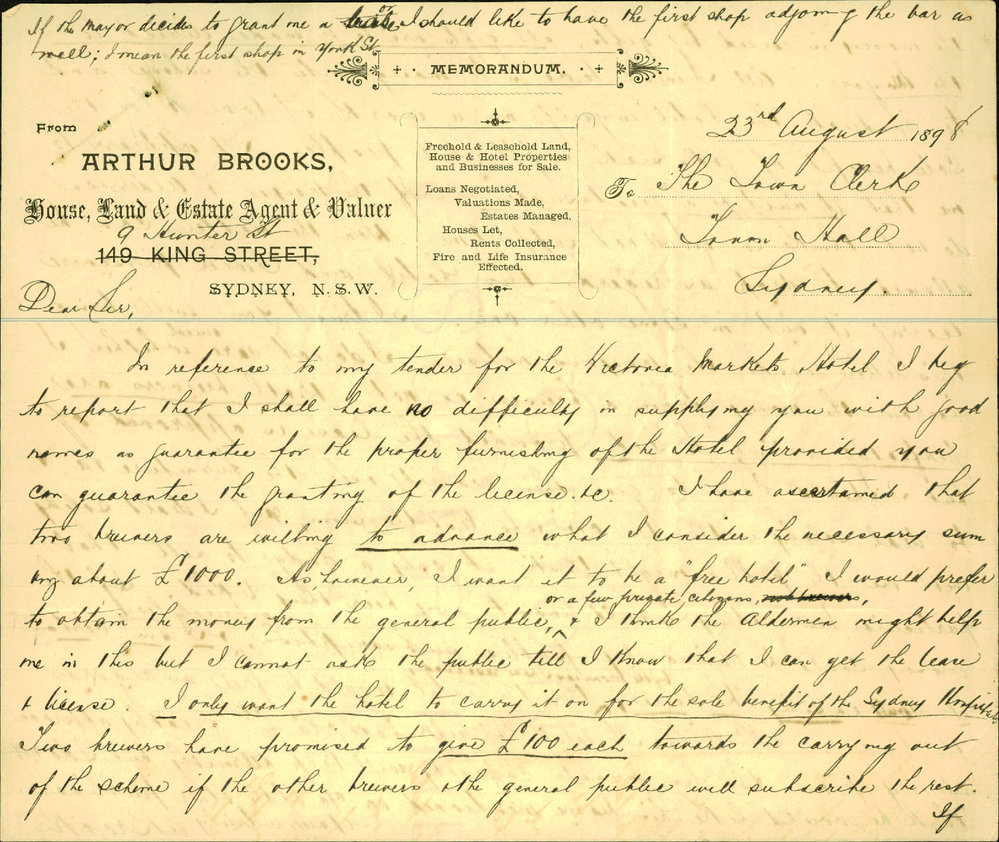 If the mayor decides to grant me a I should like to have the first shop adjoining the bar as
well; I mean the first shop in York St
MEMORANDUM.
From
ARTHUR BROOKS,
House, Land & Estate Agent & Valuer
9 Hunter St
149 KING STREET,
SYDNEY, N.S.W.
Freehold & Leasehold Land,
House & Hotel Properties
and Businesses for Sale.
Loans Negotiated,
Valuations Made,
Estates Managed,
Houses Let,
Rents Collected,
Fire and Life Insurance
Effected.
23rd August 1898
To The Town Clerk
Town Hall
Sydney.
Dear Sir,
In reference to my tender for the Victoria Markets Hotel I beg
to report that I shall have no difficulty in supplying you with good
names as guarantee for the proper furnishing of the Hotel provided you
can guarantee the granting of the license &c. I have ascertained that
two brewers are willing to advance what I consider the necessary sum
viz about £1000. As, however, I want it to be a "free hotel" I would prefer
or a few private citizens, not brewers,
to obtain the money from the general public, & I think the Aldermen might help
me in this but I cannot ask the public till I know that I can get the lease
& license. I only want the hotel to carry it on for the sole benefit of the Sydney Hospitals.
Two brewers have promised to give £100 each towards the carrying out
of the scheme if the other brewers & the general public will subscribe the rest.
If